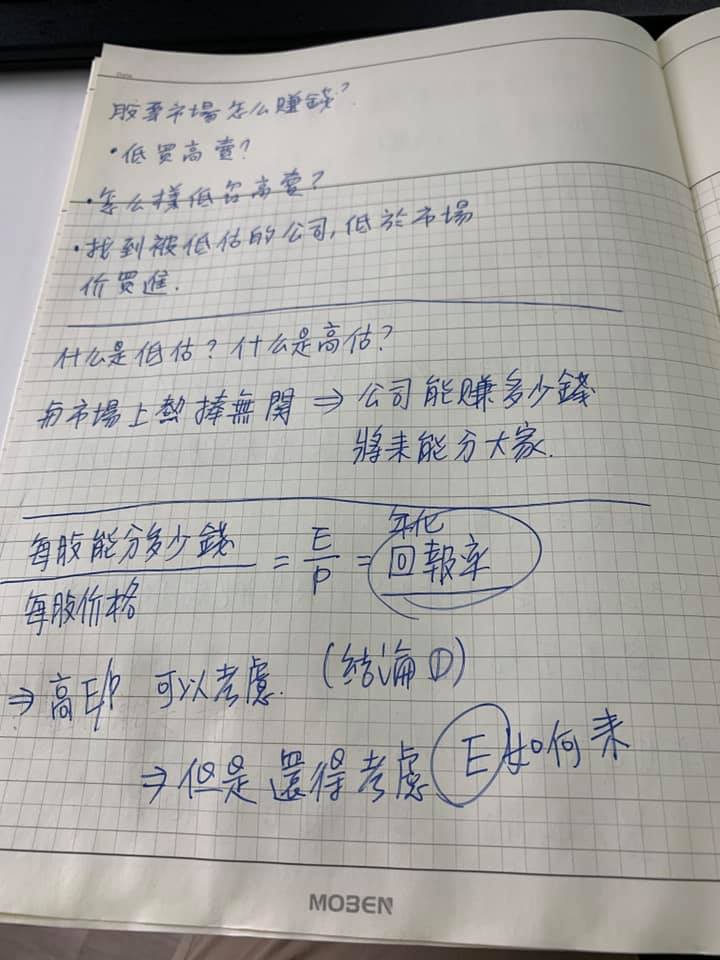 股票市場怎么賺錢?
•低買高賣?
•怎么樣低買高賣?
•找到被低估的公司,低於市場
价買進.
什么是低估? 什么是高估?
与市場上熱捧無関 ⇒ 公司能賺多少錢
將来能分大家.
每股能分多少錢 / 每股价格 = E/P = 年化回報率
⇒ 高E/P 可以考慮. (結論①)
⇒ 但是還得考慮 E 如何来
MOBEN